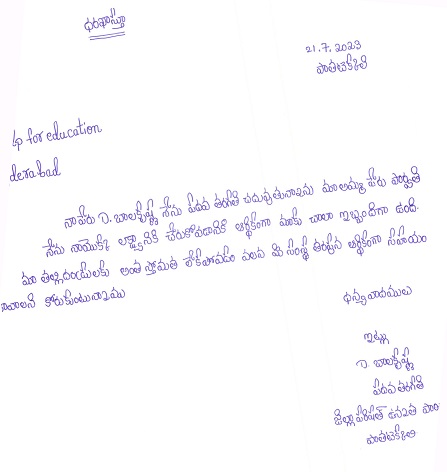 ధరఖాస్తా
21.7.2023
పాతటెక్కలి
lp for education
derabad
నాపేరు D. బాలకృష్ణ నేను పదవ తరగతి చదువుతున్నాను మా అమ్మ పేరు పార్వతి
నేను నాయొక్క లక్ష్యానికి చేరుకోవడానికి ఆర్థికంగా మాకు చాలా ఇబ్బందిగా ఉంది.
మా తల్లిదండ్రులకు అంత స్తోమత లేకపోవడం వలన మీ సంస్థ తరుపున ఆర్థికంగా సహాయం
కోరుకుంటున్నాము
ధన్యవాదములు
ఇట్లు
D. బాలకృష్ణ
పదవ తరగతి
జిల్లా పరిషత్ ఉన్నత పాఠ
పాతటెక్కలి